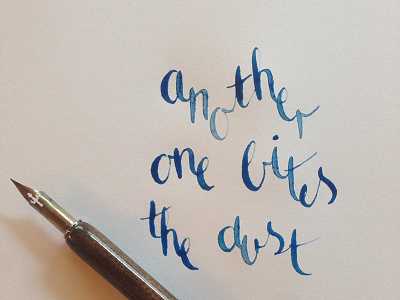 another
one bites
the dust